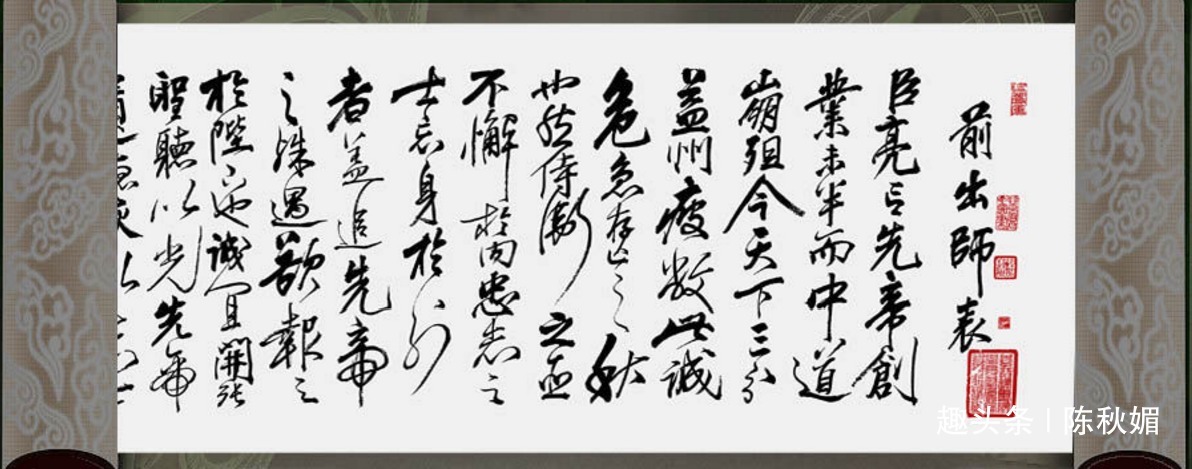 前出師表
臣亮言先帝創
業未半而中道
崩殂今天下三分
益州疲敝此誠
危急存亡之秋
也然侍衛之臣
不懈於內忠志之
士忘身於外
者蓋追先帝
之殊遇欲報之
於陛下也誠宜開張
聖聽以光先帝
趣头条 | 陈秋媚